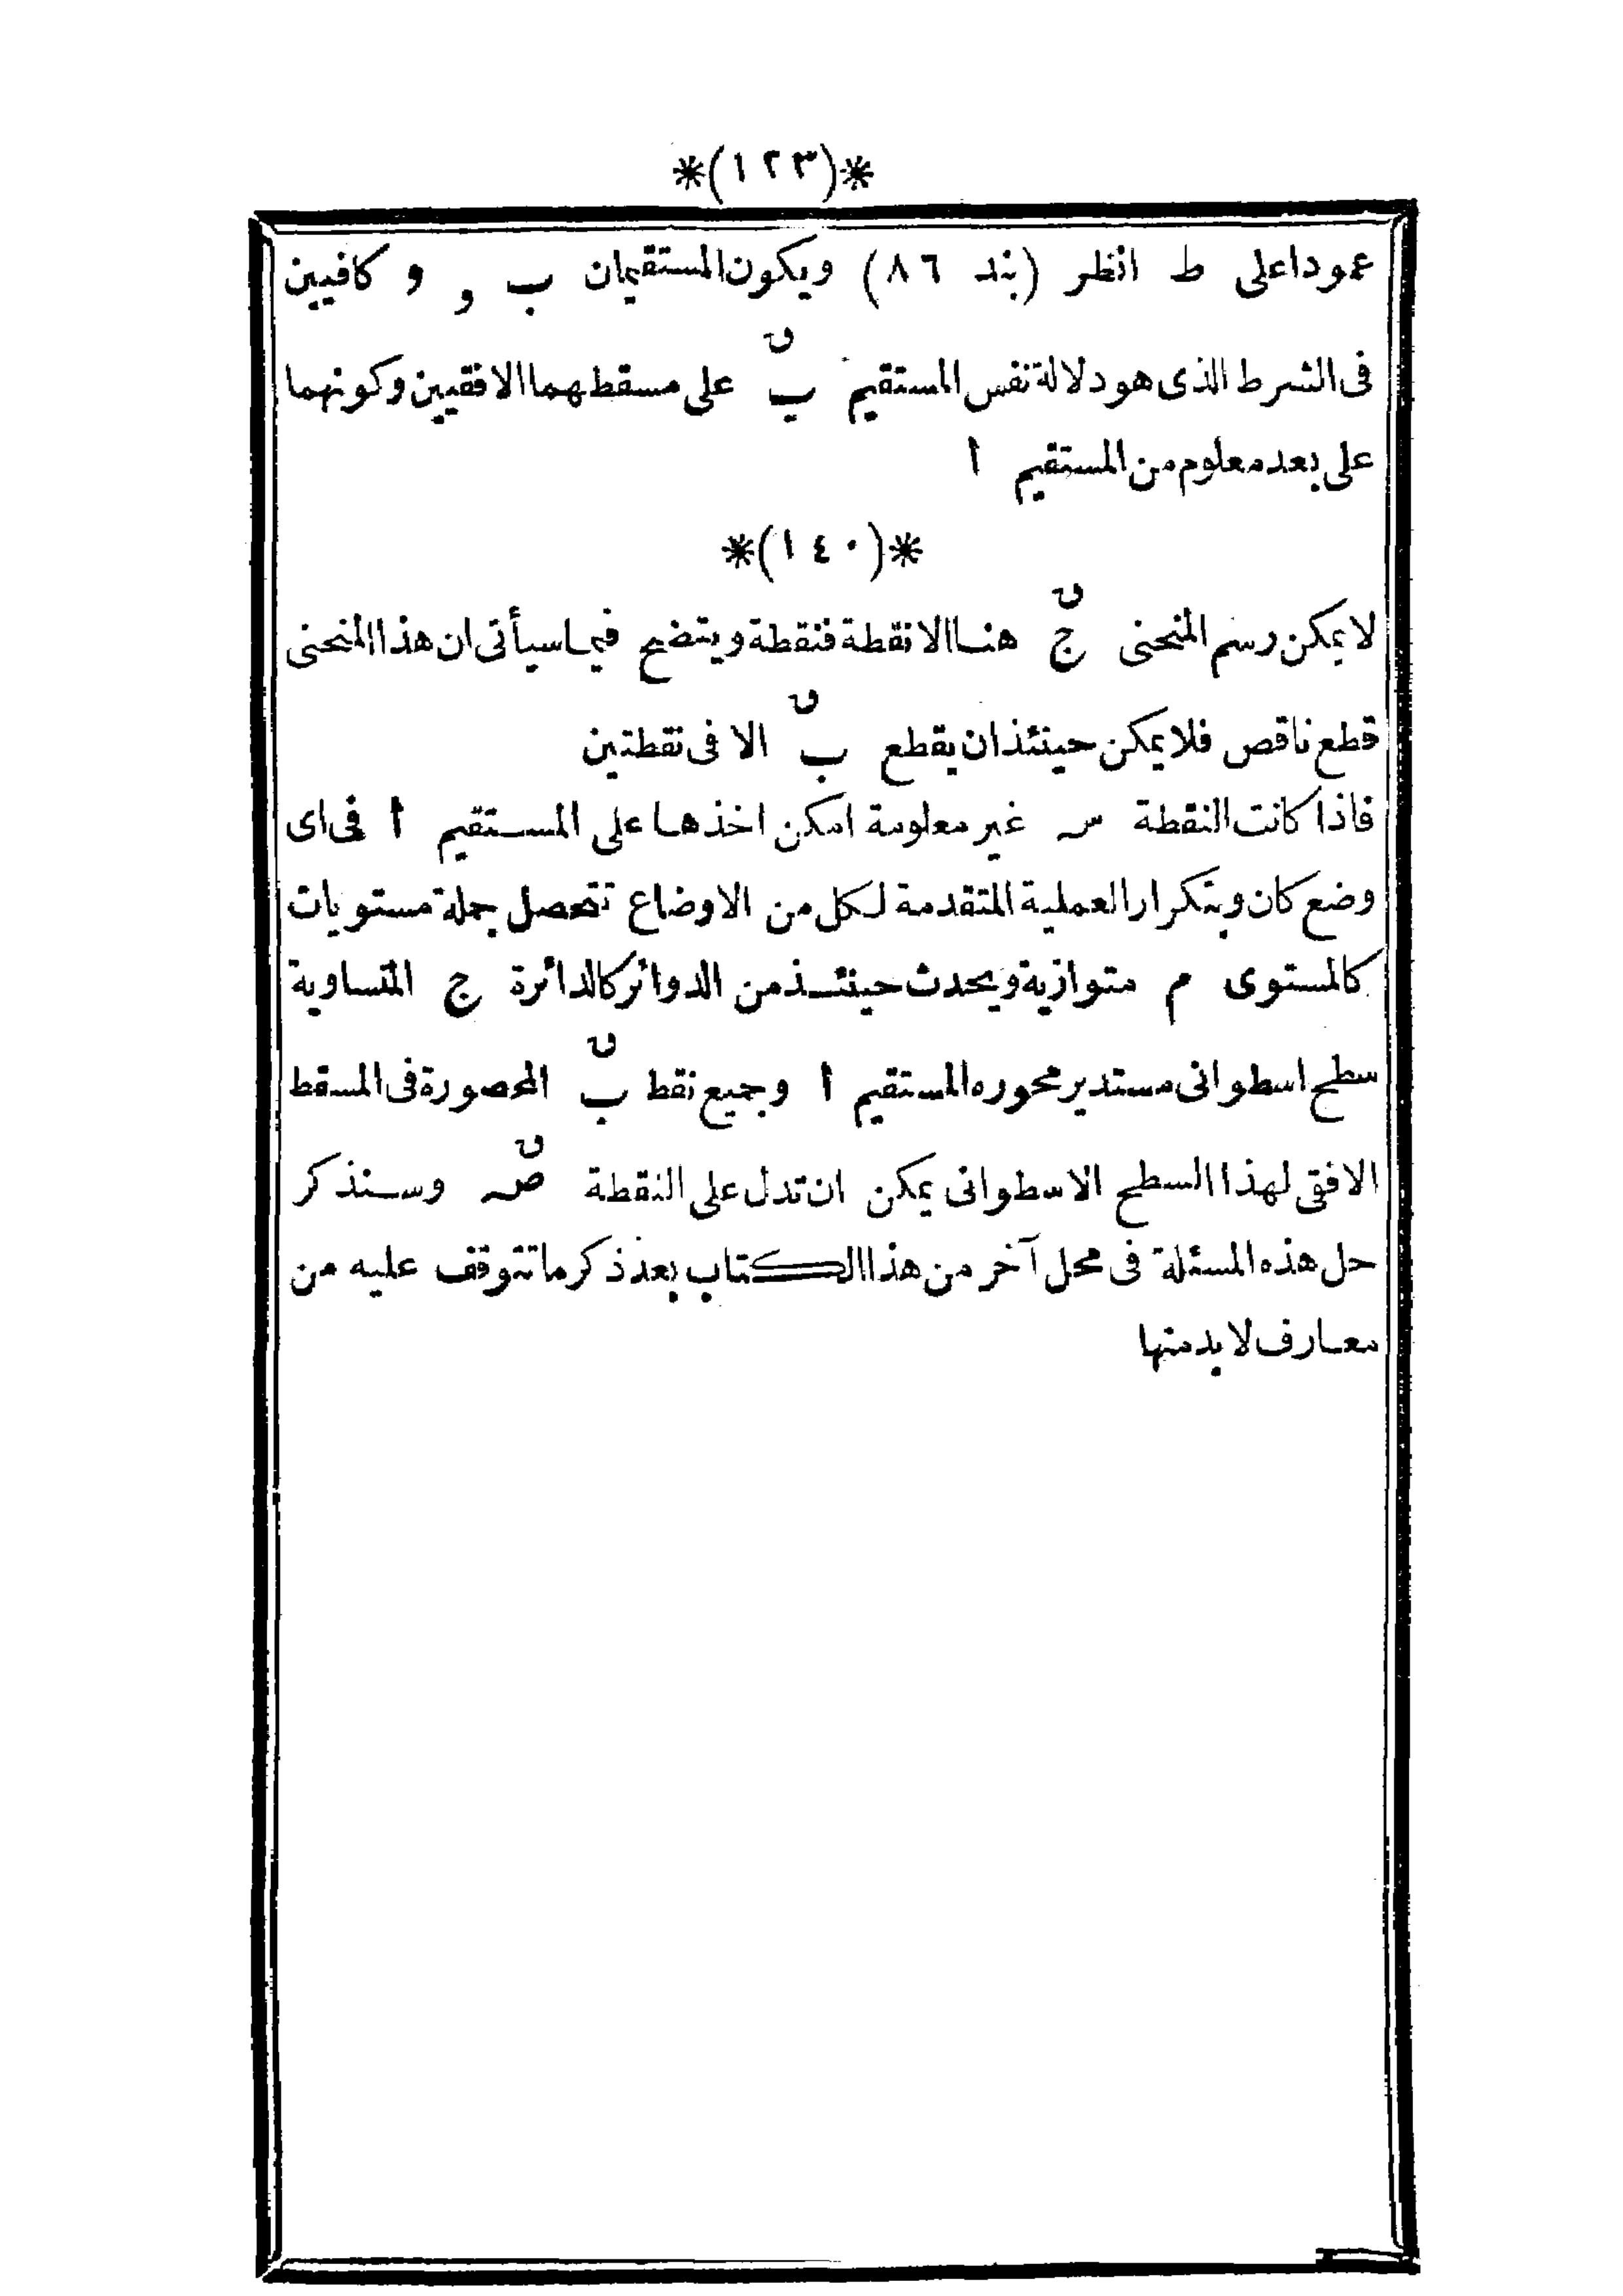 *(١٢٣)*
عموداعلى ط انظر (بند ٨٦) ويكون المستقيمان ب و و كافيين
فى الشرط الذى هو دلالة نفس المستقيم بّ على مسقطهما الافقيين وكونهما
على بعد معلوم من المستقيم ا
*(١٤٠)*
لا يمكن رسم المنحنى جّ هنا الا نقطة فنقطة ويتضح فيما سيأتى ان هذا المنحنى
قطع ناقص فلا يمكن حينئذ ان يقطع بّ الا فى نقطتين
فاذا كانت النقطة سہ غير معلومة امكن اخذها على المستقيم ا فى اى
وضع كان وبتكرار العملية المتقدمة لكل من الاوضاع تتحصل جملة مستويات
كالمستوى م متوازية ويحدث حينئذ من الدوائر كالدائرة ج المتساوية
سطح اسطوانى مستدير محوره المستقيم ا وجميع نقط بّ المحصورة فى المسقط
الافقى لهذا السطح الاسطوانى يمكن ان تدل على النقطة صہّ وسنذكر
حل هذه المسئلة فى محل آخر من هذا الكتاب بعد ذكر ما تتوقف عليه من
معارف لا بد منها